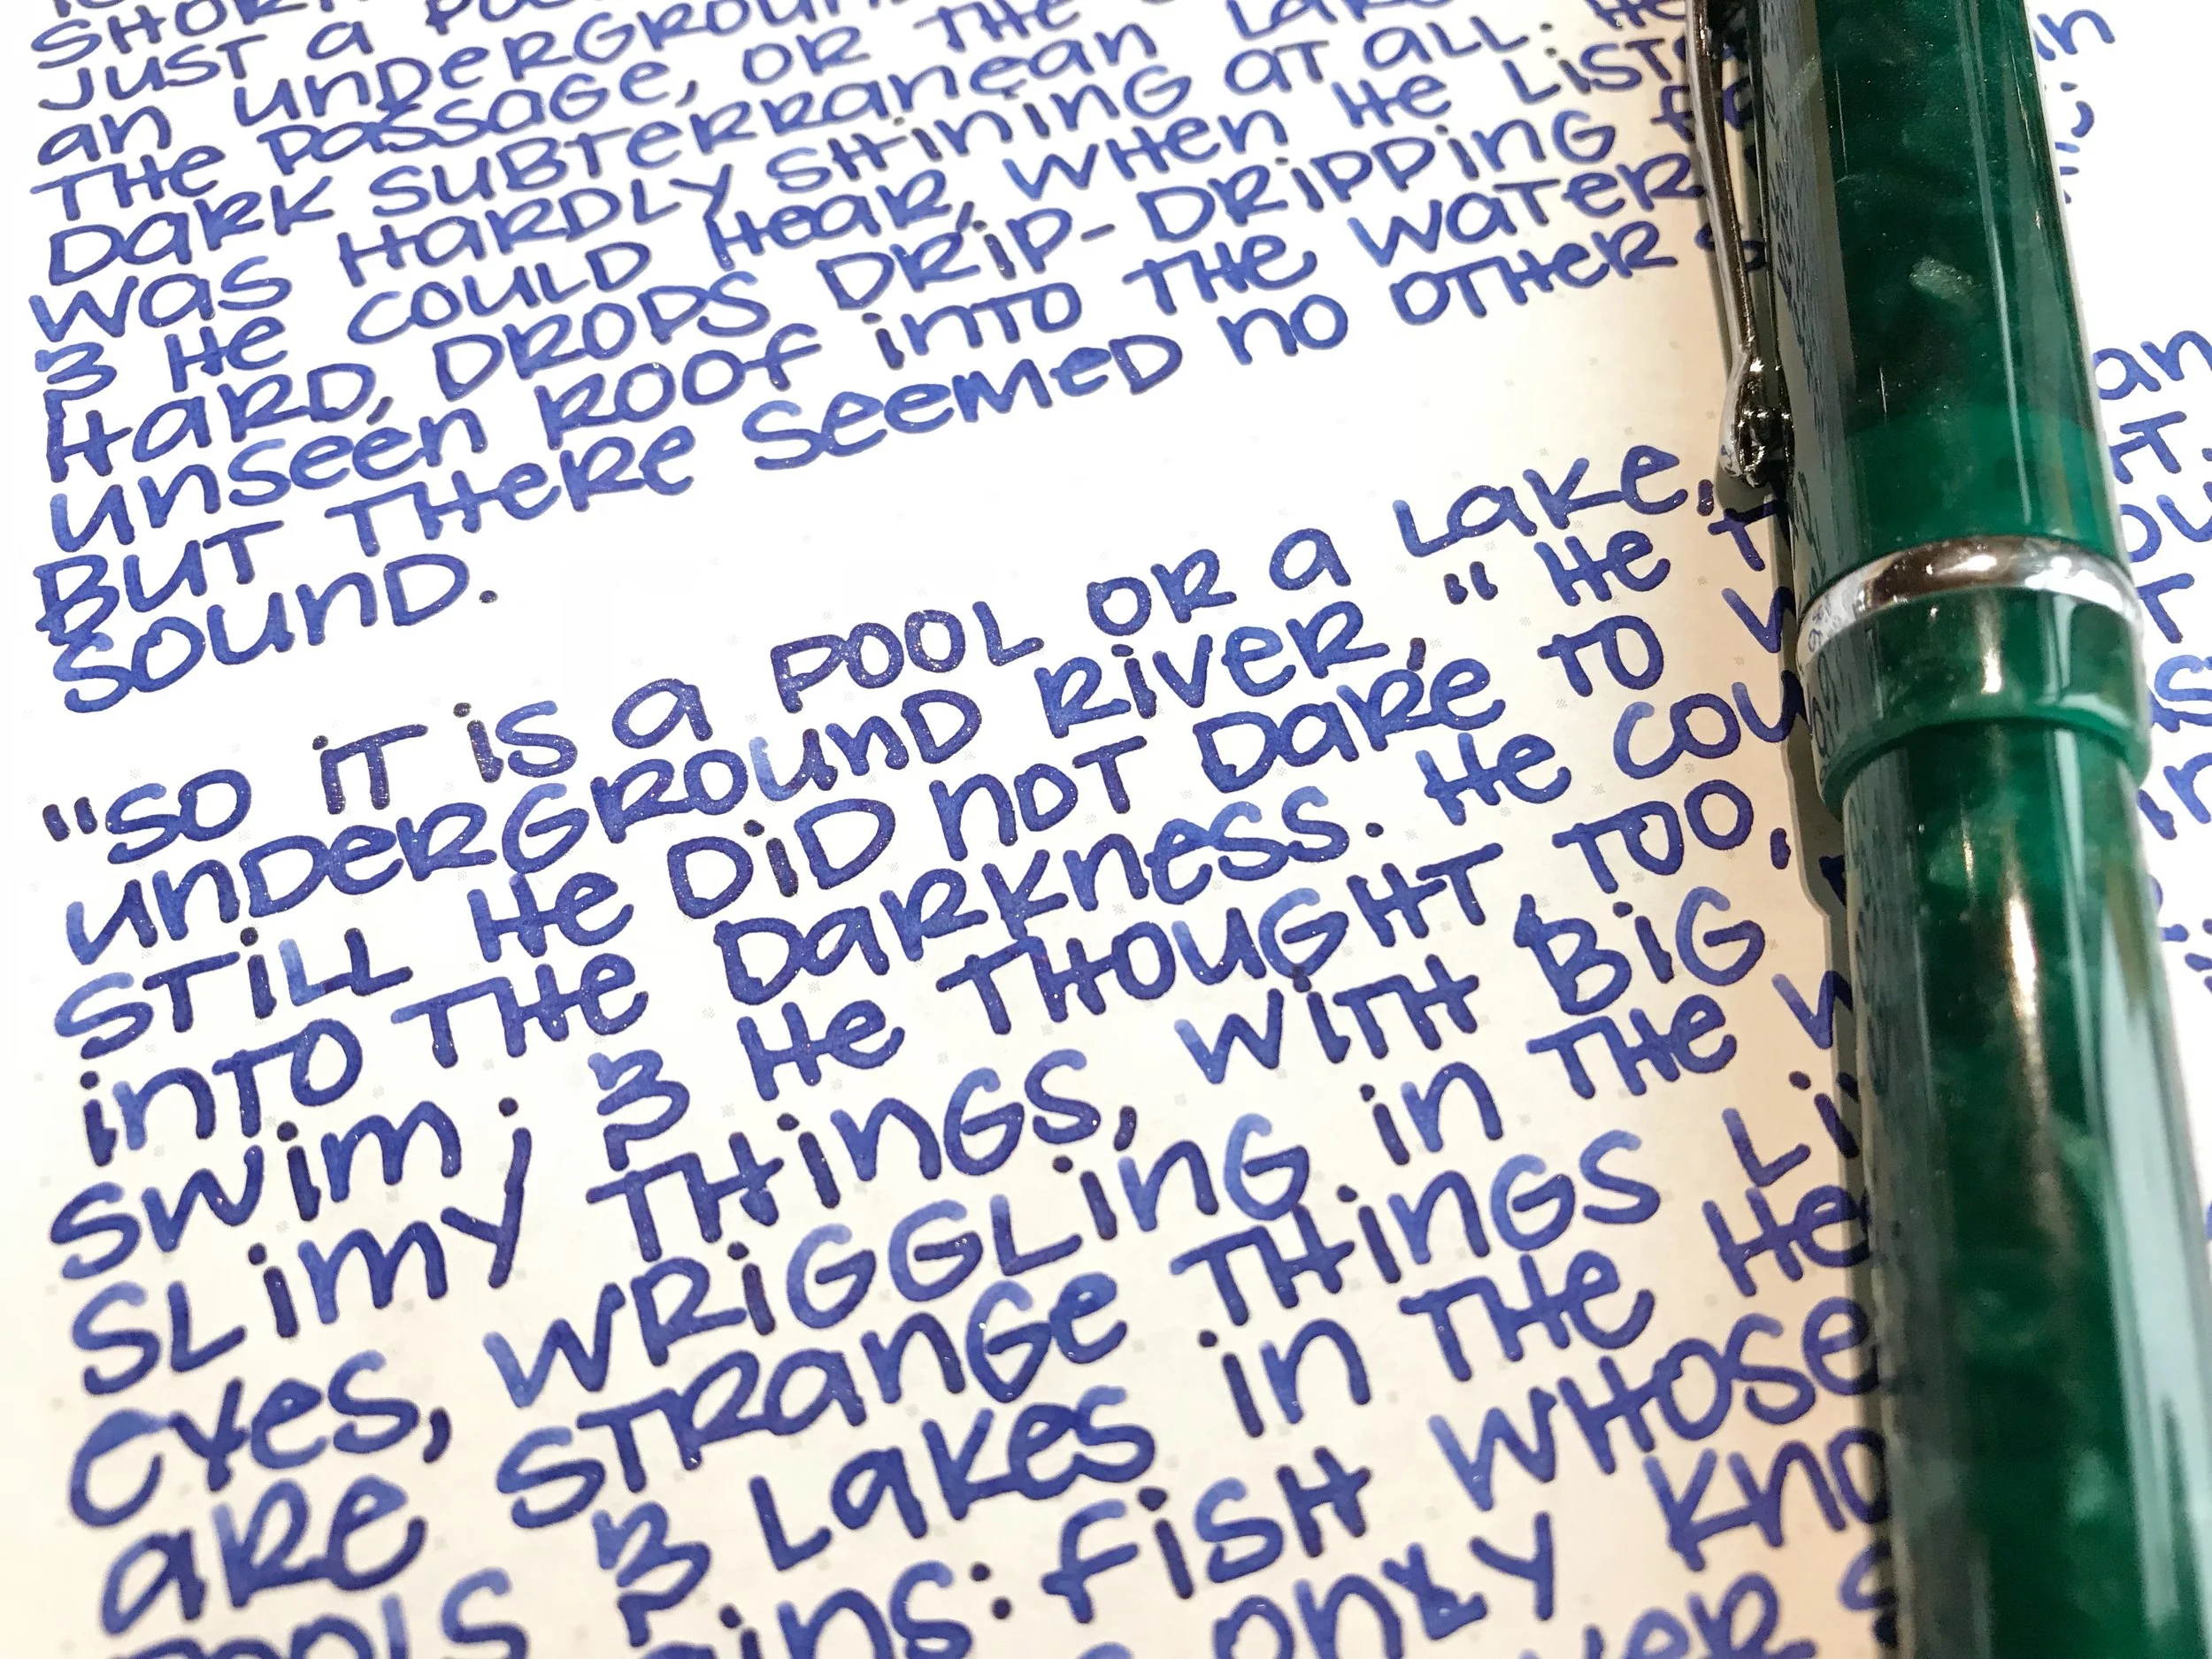 JUST A
AN UNDERGROUN
THE PASSAGE, OR THE
DARK SUBTERRANEAN LAKE
WAS HARDLY SHINING AT ALL. HE
& HE COULD HEAR, WHEN HE LIST
HARD, DROPS DRIP-DRIPPING
UNSEEN ROOF INTO THE WATER
BUT THERE SEEMED NO OTHER S
SOUND.
"SO IT IS A POOL OR A LAKE,
UNDERGROUND RIVER," HE T
STILL HE DID NOT DARE TO W
INTO THE DARKNESS. HE COU
SWIM; & HE THOUGHT, TOO,
SLIMY THINGS, WITH BIG
EYES, WRIGGLING IN THE W
ARE STRANGE THINGS LI
POOLS & LAKES IN THE HE
INS: FISH WHOSE
ONLY KNO